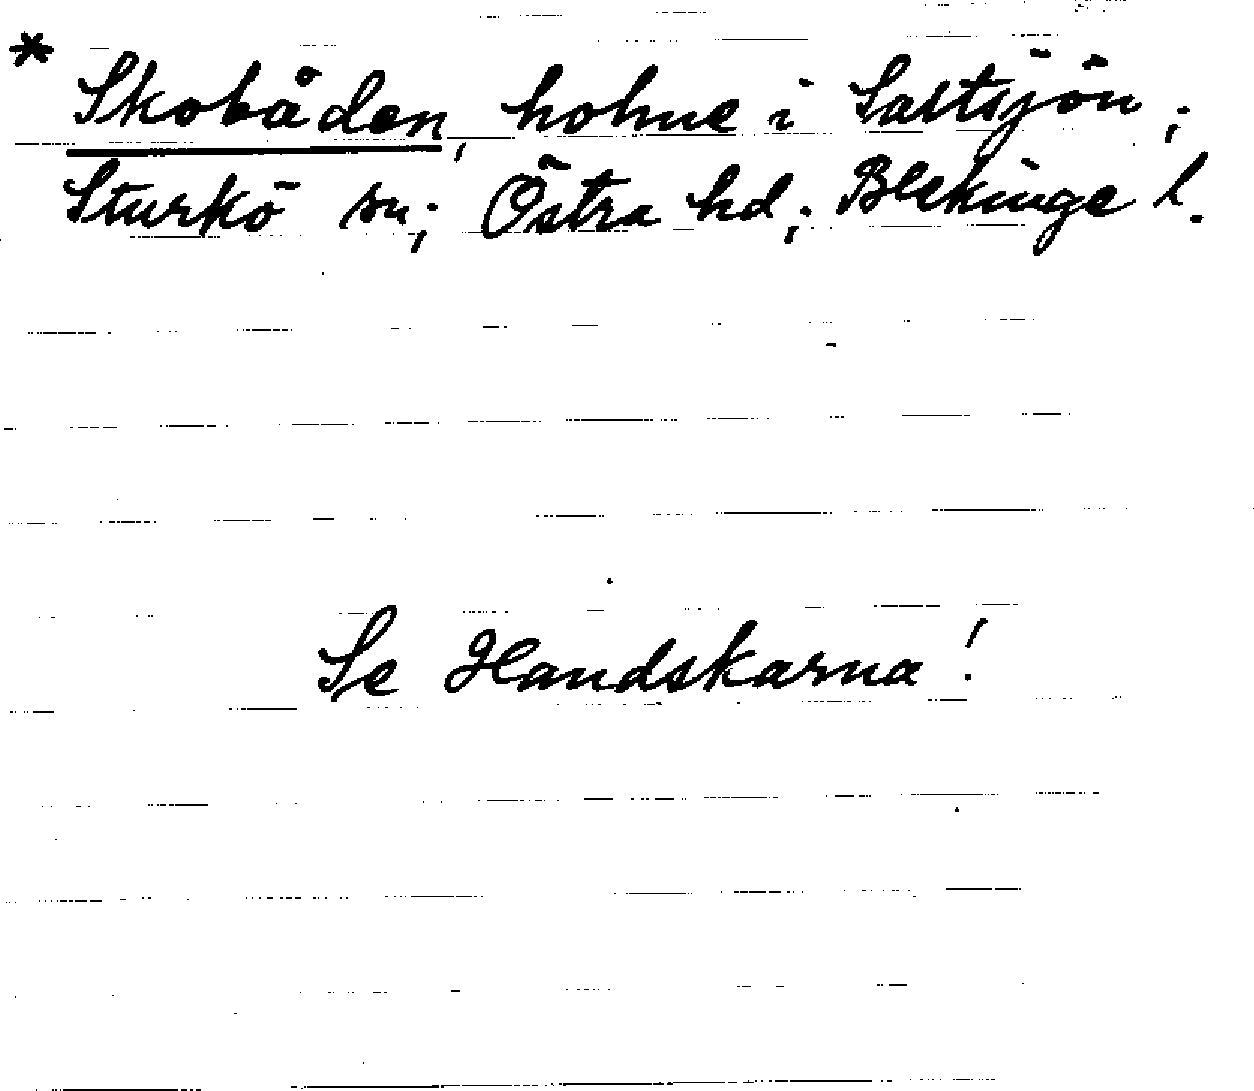 * Skobåden, holme i Saltsjön;
Sturkö sn; Östra hd; Blekinge l.
Se Handskarna!